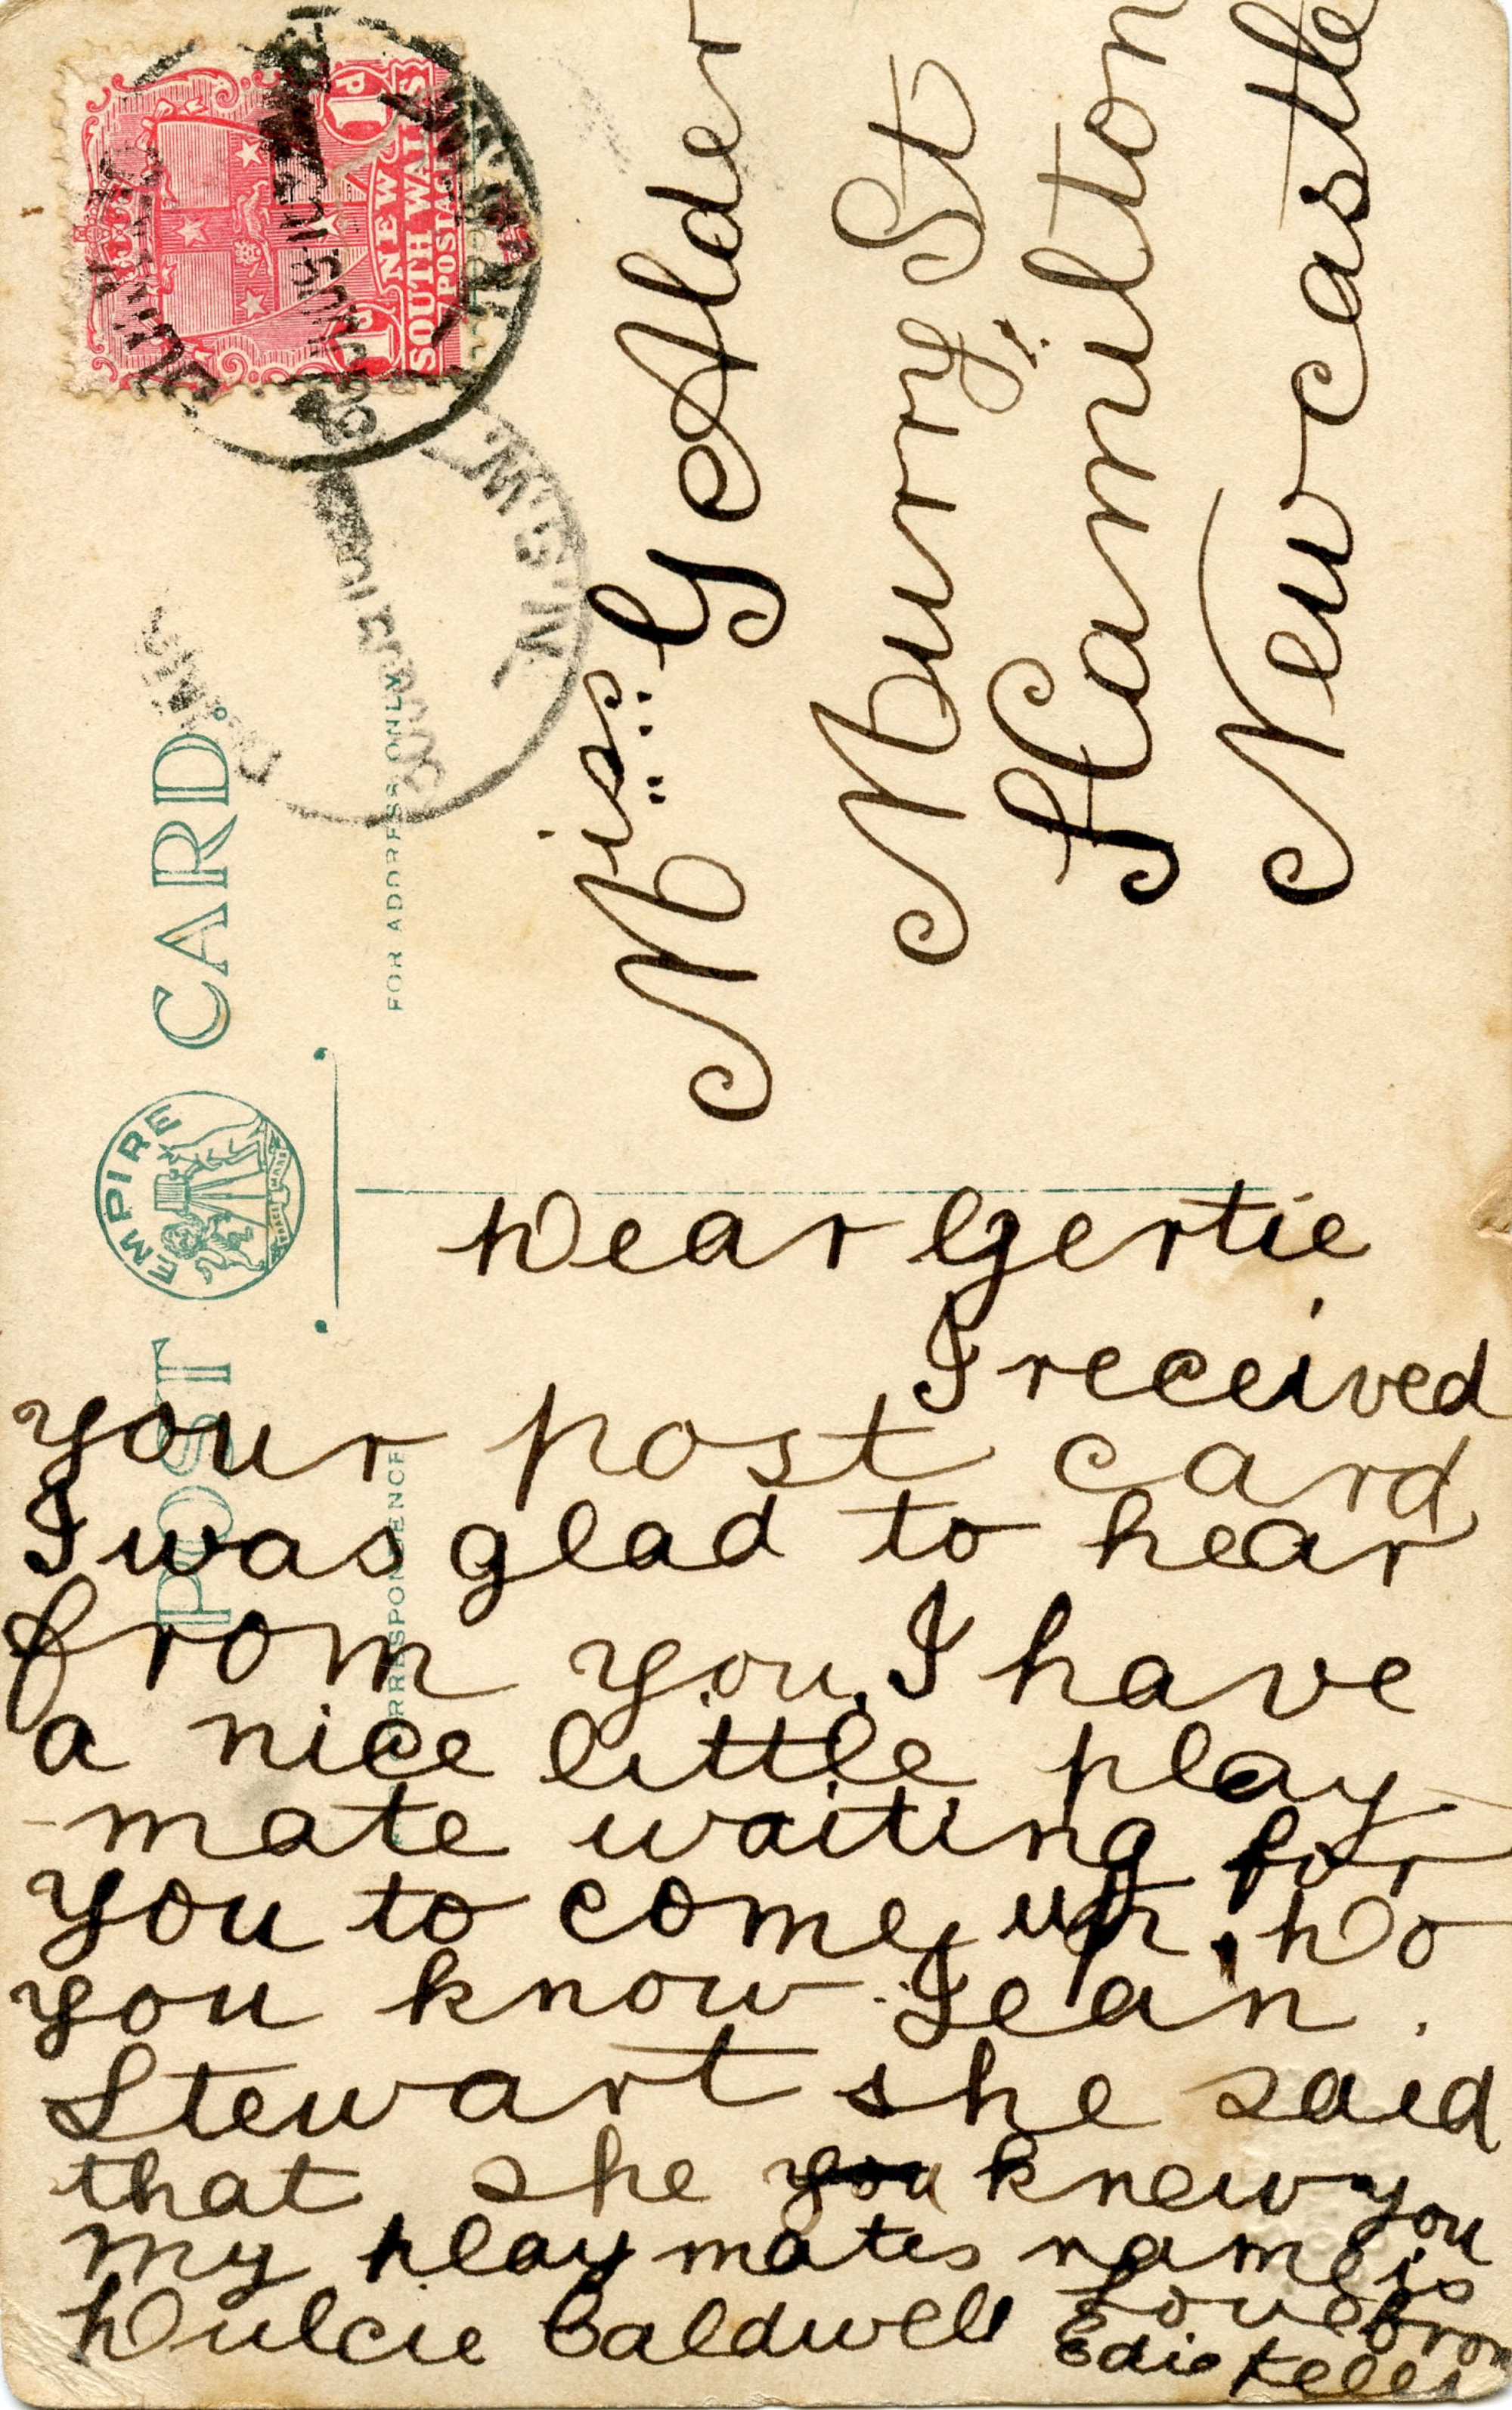 POST EMPIRE CARD.
CORRESPONDENCE
FOR ADDRESS ONLY
1d 1d
NEW
SOUTH WALES
POSTAGE
Miss G Alder
Murry St
Hamilton
Newcastle
Dear Gertie
I received
your post card
I was glad to hear
from you. I have
a nice little play
-mate waiting for
you to come up. Do
you know Jean.
Stewart she said
that she you knew you
my playmates name is
Dulcie Caldwell Love from
Edie Kelly